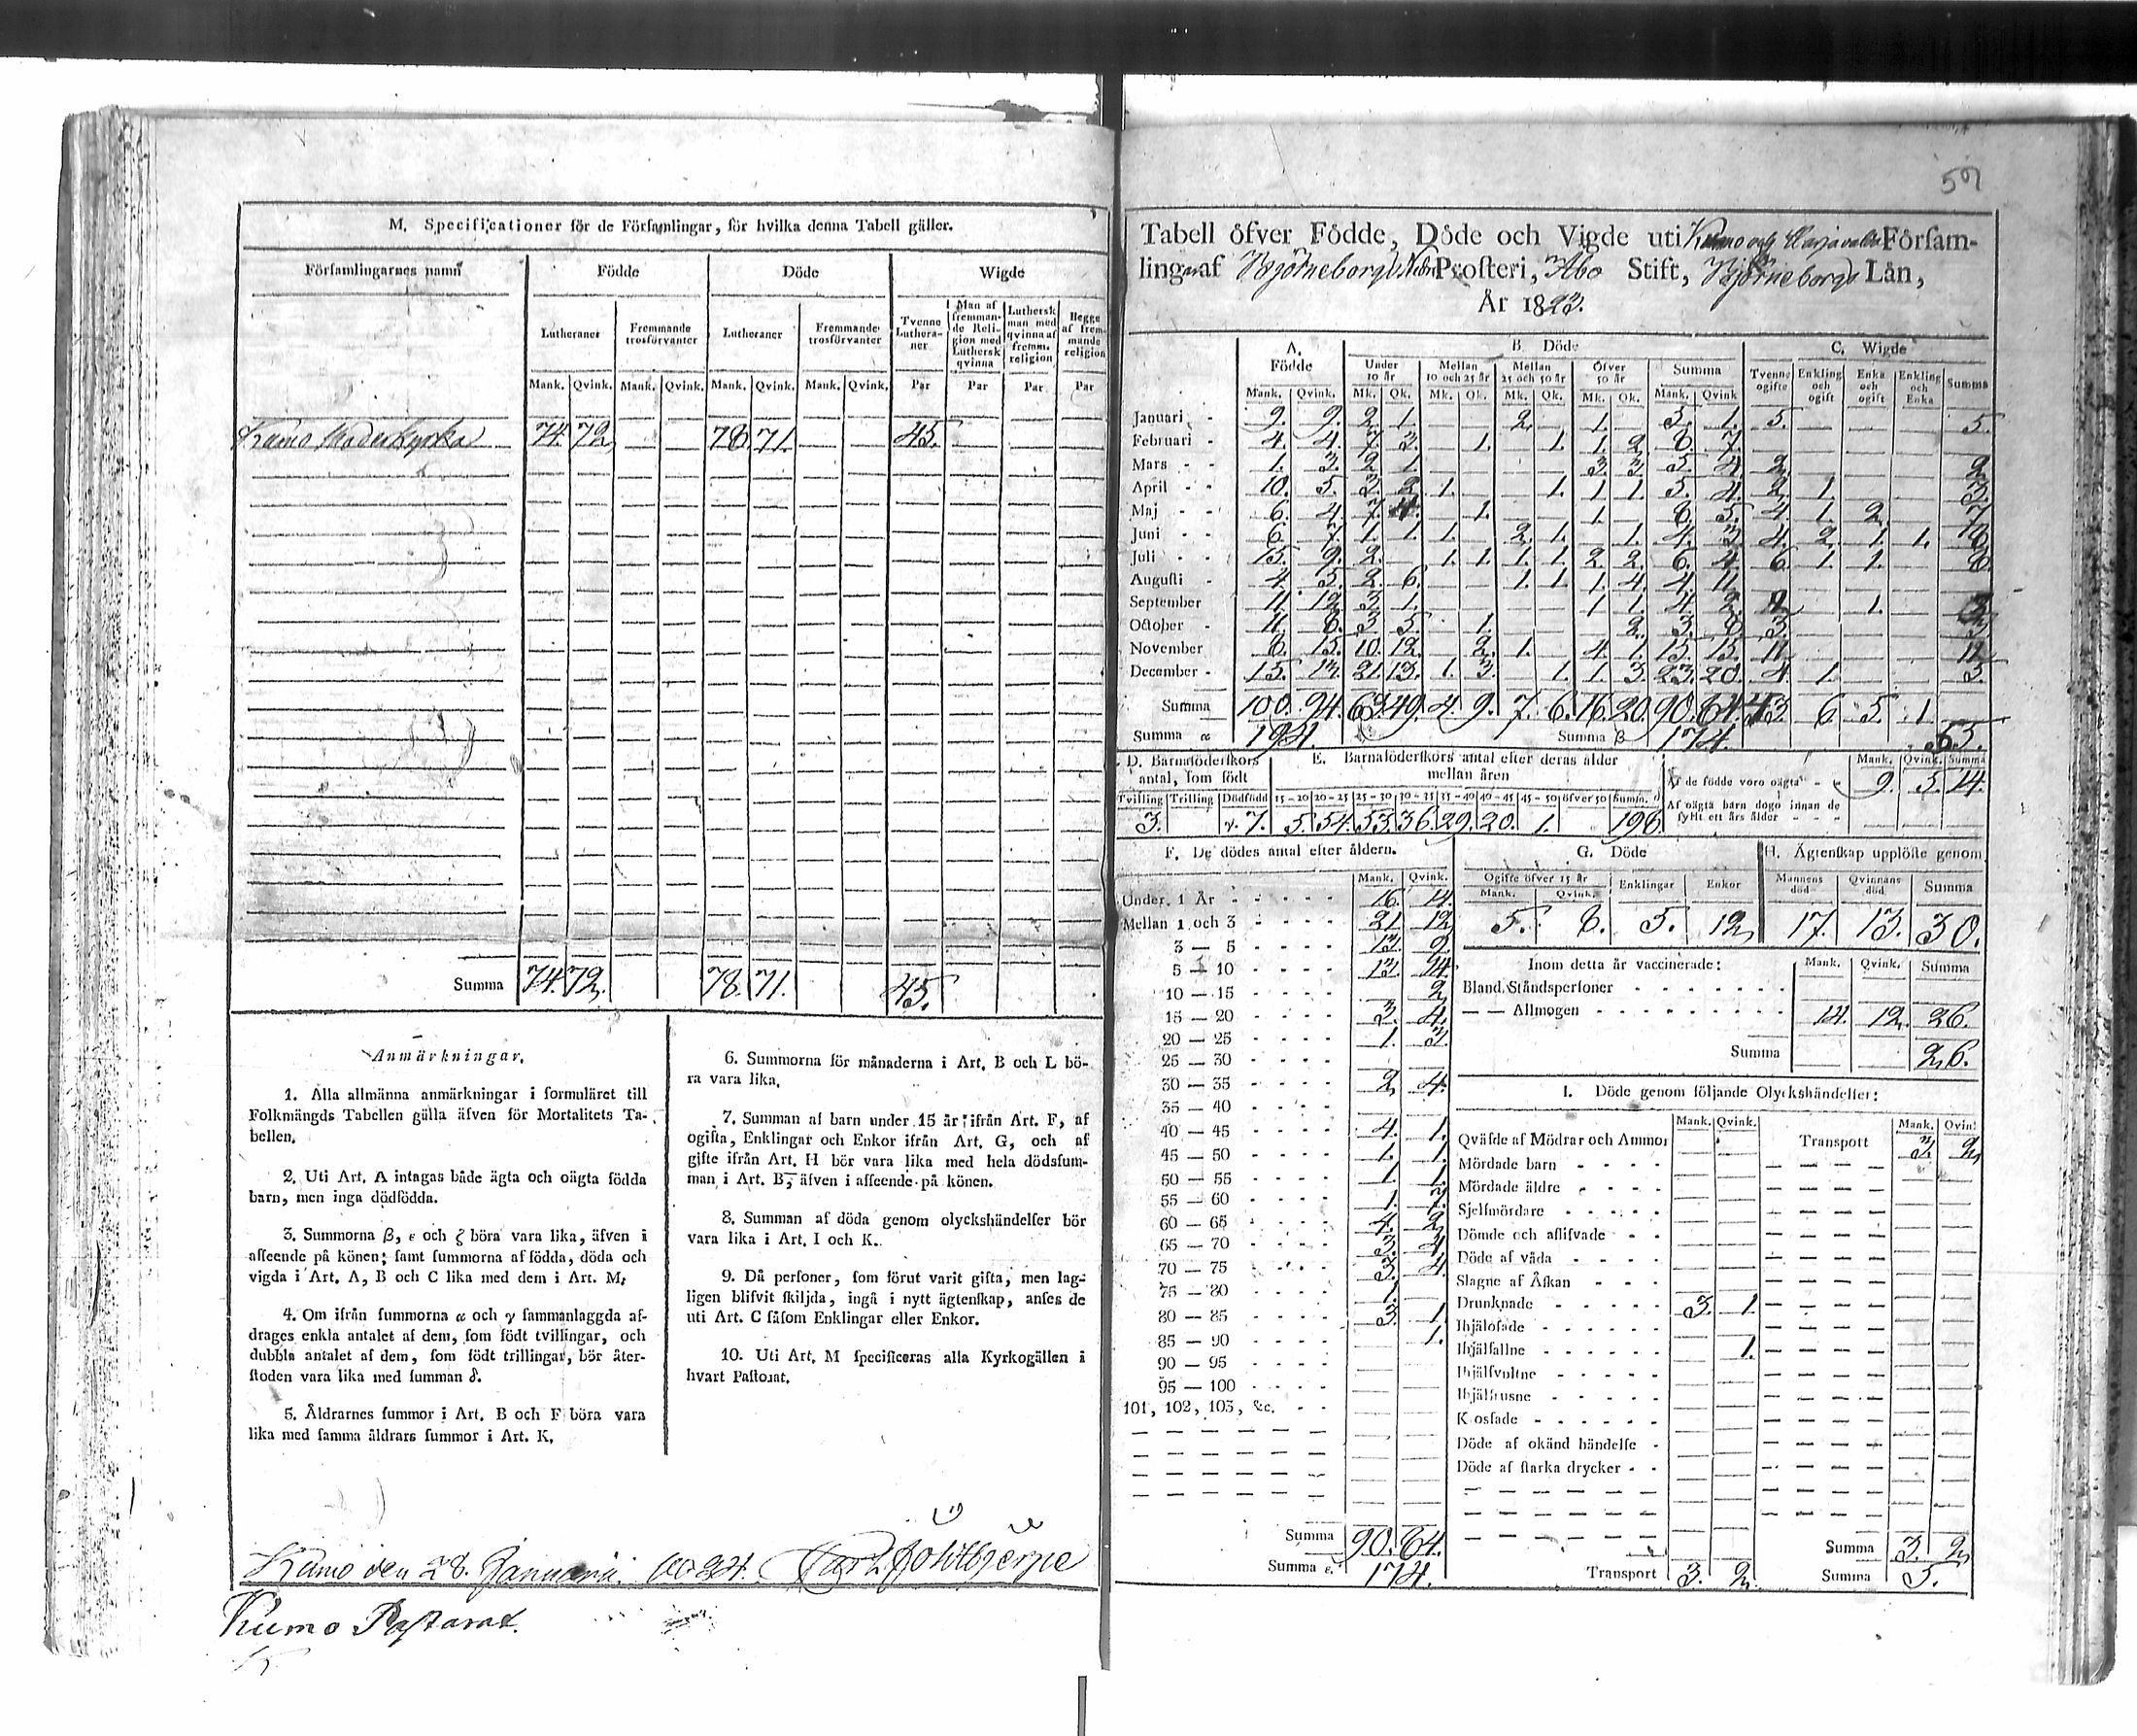 M. Specificationer för de Församlingar, för hvilka denna Tabell gäller.
Församlingarnes namn Födde Döde Wigde
Lutheraner Fremmande trosförvanter Lutheraner Fremmande trosförvanter Tvenne Lutheraner Man af fremmande Religion med Luthersk qvinna Luthersk man med qvinna af fremm. religion Begge af fremmande religion
Mank. Qvink. Mank. Qvink. Mank. Qvink. Mank. Qvink. Par Par Par Par
Kumo Moderkyrka 74. 72. — — 78. 71. — — 45. — — —
Summa 74. 72. 78. 71. 45.
Anmärkningar.
1. Alla allmänna anmärkningar i formuläret till
Folkmängds Tabellen gälla äfven för Mortalitets Ta-
bellen.
2. Uti Art. A intagas både ägta och oägta födda
barn, men inga dödfödda.
3. Summorna β, ε och ζ böra vara lika, äfven i
afseende på könen; samt summorna af födda, döda och
vigda i Art. A, B och C lika med dem i Art. M.
4. Om ifrån summorna α och γ sammanlaggda af-
drages enkla antalet af dem, som födt tvillingar, och
dubbla antalet af dem, som födt trillingar, bör åter-
stoden vara lika med summan δ.
5. Åldrarnes summor i Art. B och F böra vara
lika med samma åldrars summor i Art. K.
6. Summorna för månaderna i Art. B och L bö-
ra vara lika.
7. Summan af barn under 15 år ifrån Art. F, af
ogifta, Enklingar och Enkor ifrån Art. G, och af
gifte ifrån Art. H bör vara lika med hela dödsfum-
man i Art. B, äfven i afseende på könen.
8. Summan af döda genom olyckshändelser bör
vara lika i Art. I och K.
9. Då personer, som förut varit gifta, men lag-
ligen blifvit skiljda, ingå i nytt ägtenskap, anses de
uti Art. C såsom Enklingar eller Enkor.
10. Uti Art. M specificeras alla Kyrkogällen i
hvart Pastorat.
Kumo den 28. Januarii 1824.
Kumo Pastorat.
Tabell öfver Födde, Döde och Vigde uti Kumo och Harjavalda Försam-
lingar af Björneborgs Nedre Prosteri, Åbo Stift, Björneborgs Län,
År 1823.
A. Födde B. Döde C. Wigde
Under 10 år Mellan 10 och 25 år Mellan 25 och 50 år Öfver 50 år Summa Tvenne ogifte Enkling och ogift Enka och ogift Enkling och Enka Summa
Mank. Qvink. Mk. Qk. Mk. Qk. Mk. Qk. Mk. Qk. Mank. Qvink
Januari 9. 9. 2. 1. — — 2. — 1. — 5. 1. 5. — — — 5.
Februari 4. 4. 7. 3. — 1. — 1. 1. 2. 8. 7. — — — —
Mars 1. 3. 2. 1. — — — — 3. 3. 5. 4. 2. — — — 2.
April 10. 5. 3. 2. 1. — — 1. 1. 1. 5. 4. 2. 1. — — 3.
Maj 6. 4. 7. 4. — 1. — — 1. — 8. 5. 4. 1. 2. — 7.
Juni 6. 7. 1. 1. 1. — 2. 1. — 1. 4. 3. 4. 2. 1. 1. 8.
Juli 15. 9. 2. — 1. 1. 1. 1. 2. 2. 6. 4. 6. 1. 1. — 8.
Augusti 4. 5. 2. 6. — — 1. 1. 1. 4. 4. 11. — — — —
September 11. 12. 3. 1. — — — — 1. 1. 4. 2. 2. — 1. — 3.
October 11. 8. 3. 5. — 1. — — — 2. 3. 8. 3. — — — 3.
November 8. 15. 10. 12. — 2. 1. — 4. 1. 15. 15. 11. — — —
December 15. 13. 21. 13. 1. 3. — 1. 1. 3. 23. 20. 4. 1. — — 5.
Summa 100. 94. 63. 49. 4. 9. 7. 6. 16. 20. 90. 84. 43. 6. 5. 1.
Summa α 194. Summa β 174. 55.
D. Barnaföderskors antal, som födt E. Barnaföderskors antal efter deras ålder mellan åren Mank. Qvink. Summa
Af de födde voro oägta 9. 5. 14.
Tvilling Trilling Dödfödd 15-20 20-25 25-30 30-35 35-40 40-45 45-50 öfver 50 Summ. δ
Af oägta barn dogo innan de fyllt ett års ålder — — —
3. γ. 7. 5. 54. 53. 36. 29. 20. 1. 198.
F. De dödes antal efter åldern.
Mank. Qvink.
Under 1 År 16. 14.
Mellan 1 och 3 21. 12.
3 — 5 13. 9.
5 — 10 13. 14.
10 — 15 — 2.
15 — 20 3. 4.
20 — 25 1. 3.
25 — 30
30 — 35 2. 4.
35 — 40
40 — 45 4. 1.
45 — 50 1. 1.
50 — 55 1. 1.
55 — 60 1. 7.
60 — 65 4. 2.
65 — 70 3. 4.
70 — 75 3. 4.
75 — 80 1. —
80 — 85 3. 1.
85 — 90 — 1.
90 — 95
95 — 100
101, 102, 103, &c.
Summa 90. 84.
Summa ε. 174.
G. Döde H. Ägtenskap upplöste genom
Ogifte öfver 15 år Enklingar Enkor Mannens död Qvinnans död Summa
Mank. Qvink.
5. 8. 5. 12. 17. 13. 30.
Inom detta år vaccinerade: Mank. Qvink. Summa
Bland Ståndspersoner — — —
— — Allmogen 14. 12. 26.
Summa 26.
I. Döde genom följande Olyckshändelser:
Mank. Qvink. Mank. Qvink.
Qväfde af Mödrar och Ammor Transport 3. 2.
Mördade barn
Mördade äldre
Sjelfmördare
Dömde och aflifvade
Döde af våda
Slagne af Åskan
Drunknade 3. 1.
Ihjälösade
Ihjälfallne — 1.
Ihjälfrusne
Kosfade
Döde af okänd händelse
Döde af starka drycker
Summa 3. 2.
Transport 3. 2. Summa 5.